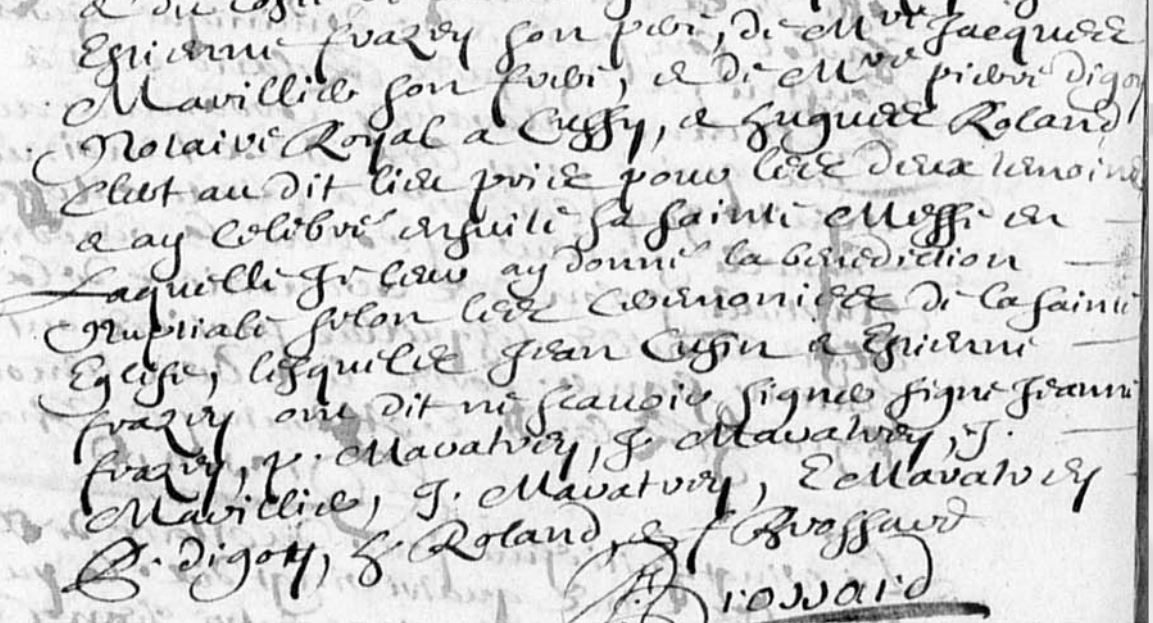 & du costé de
Estienne frazey son pere, de Mre Jacques
Mavillier son frere, & de Mre pierre digoy
Notaire Royal a Cussy, & hugues Roland
Clerc au dit lieu pries pour les deux temoins
& ay celebré ensuite la sainte Messe en
Laquelle Je leur ay donné la benediction
Nuptiale selon les ceremonies de la sainte
Eglise, lesquels Jean Cusin & Estienne
frazey ont dit ne scavoir signer signé Jeanne
frazey, p. Mavatrey, J. Mavatrey, J.
Mavillier, J. Mavatrey, E Mavatrey
P. digoy, h. Roland, & f Brossard
Brossard